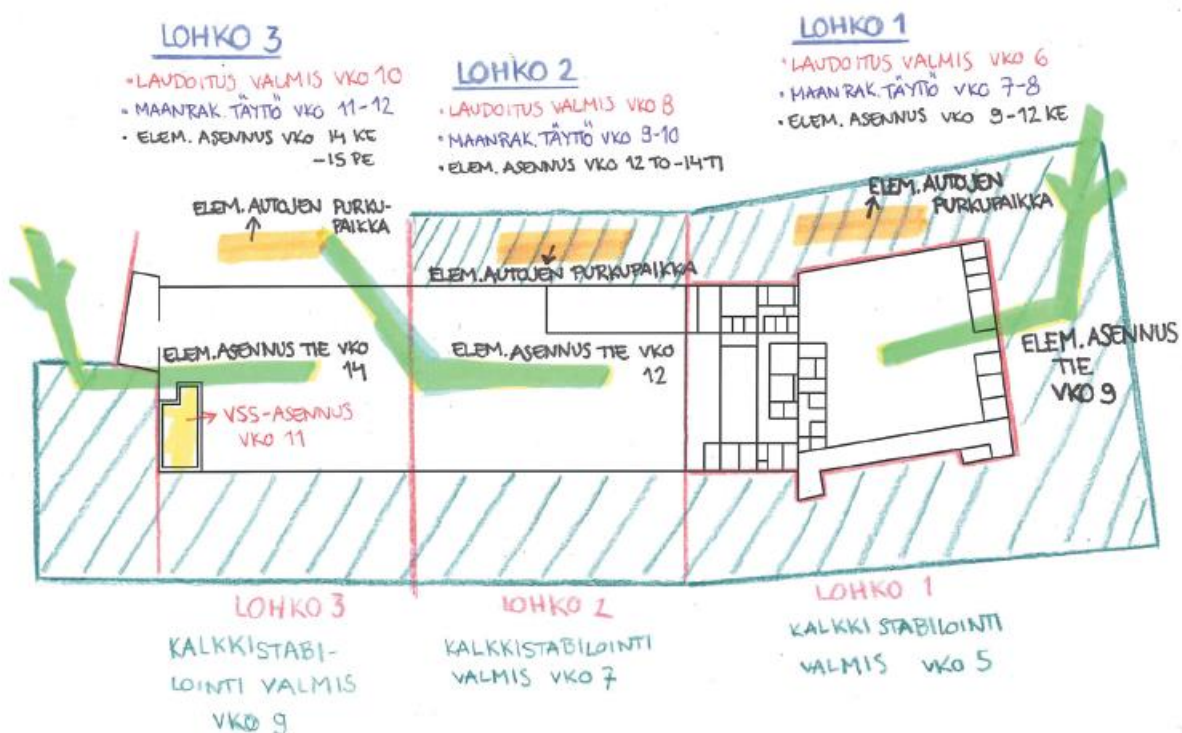 LOHKO 3
• LAUDOITUS VALMIS VKO 10
• MAANRAK. TÄYTTÖ VKO 11-12
• ELEM. ASENNUS VKO 14 KE
-15 PE
LOHKO 2
• LAUDOITUS VALMIS VKO 8
• MAANRAK. TÄYTTÖ VKO 9-10
• ELEM. ASENNUS VKO 12 TO-14 TI
LOHKO 1
• LAUDOITUS VALMIS VKO 6
• MAANRAK. TÄYTTÖ VKO 7-8
• ELEM. ASENNUS VKO 9-12 KE
ELEM. AUTOJEN PURKU-
PAIKKA
ELEM. AUTOJEN PURKUPAIKKA
ELEM. AUTOJEN
PURKUPAIKKA
ELEM. ASENNUS TIE VKO
14
ELEM. ASENNUS TIE VKO
12
ELEM. ASENNUS
TIE
VKO 9
VSS-ASENNUS
VKO 11
LOHKO 3
KALKKISTABI-
LOINTI VALMIS
VKO 9
LOHKO 2
KALKKISTABILOINTI
VALMIS VKO 7
LOHKO 1
KALKKI STABILOINTI
VALMIS VKO 5